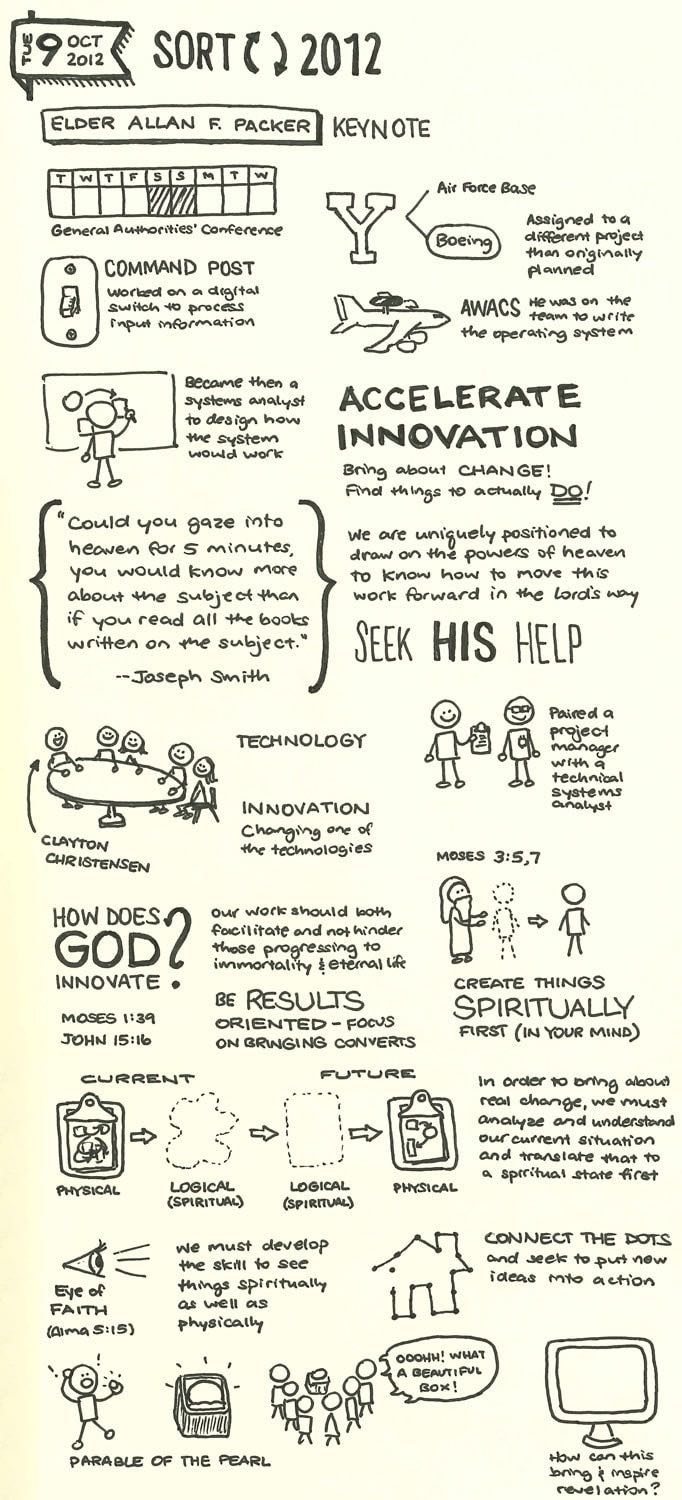 TUE 9 OCT 2012
SORT 2012
ELDER ALLAN F. PACKER KEYNOTE
T W T F S S M T W
General Authorities' Conference
Y
Air Force Base
Boeing
Assigned to a
different project
than originally
planned
COMMAND POST
Worked on a digital
switch to process
input information
AWACS He was on the
team to write
the operating system
Became then a
systems analyst
to design how
the system
would work
ACCELERATE
INNOVATION
Bring about CHANGE!
Find things to actually DO!
"Could you gaze into
heaven for 5 minutes,
you would know more
about the subject than
if you read all the books
written on the subject."
--Joseph Smith
We are uniquely positioned to
draw on the powers of heaven
to know how to move this
work forward in the Lord's way
SEEK HIS HELP
CLAYTON
CHRISTENSEN
TECHNOLOGY
INNOVATION
Changing one of
the technologies
Paired a
project
manager
with a
technical
systems
analyst
HOW DOES
GOD
INNOVATE?
MOSES 1:39
JOHN 15:16
Our work should both
facilitate and not hinder
those progressing to
immortality & eternal life
BE RESULTS
ORIENTED - FOCUS
ON BRINGING CONVERTS
MOSES 3:5,7
CREATE THINGS
SPIRITUALLY
FIRST (IN YOUR MIND)
CURRENT FUTURE
PHYSICAL
LOGICAL
(SPIRITUAL)
LOGICAL
(SPIRITUAL)
PHYSICAL
In order to bring about
real change, we must
analyze and understand
our current situation
and translate that to
a spiritual state first
Eye of
FAITH
(Alma 5:15)
We must develop
the skill to see
things spiritually
as well as
physically
CONNECT THE DOTS
and seek to put new
ideas into action
PARABLE OF THE PEARL
OOOHH! WHAT
A BEAUTIFUL
BOX!
How can this
bring & inspire
revelation?